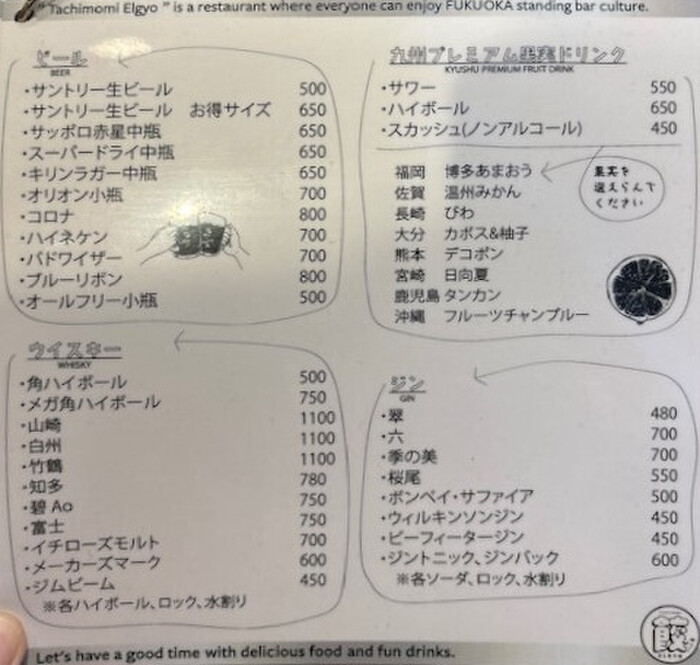 " Tachimomi Elgyo " is a restaurant where everyone can enjoy FUKUOKA standing bar culture.
ビール
BEER
・サントリー生ビール 500
・サントリー生ビール お得サイズ 650
・サッポロ赤星中瓶 650
・スーパードライ中瓶 650
・キリンラガー中瓶 650
・オリオン小瓶 700
・コロナ 800
・ハイネケン 700
・バドワイザー 700
・ブルーリボン 800
・オールフリー小瓶 500
ウイスキー
WHISKY
・角ハイボール 500
・メガ角ハイボール 750
・山崎 1100
・白州 1100
・竹鶴 1100
・知多 780
・碧 Ao 750
・富士 750
・イチローズモルト 700
・メーカーズマーク 600
・ジムビーム 450
※各ハイボール、ロック、水割り
九州プレミアム果実ドリンク
KYUSHU PREMIUM FRUIT DRINK
・サワー 550
・ハイボール 650
・スカッシュ(ノンアルコール) 450
福岡 博多あまおう
佐賀 温州みかん
長崎 びわ
大分 カボス&柚子
熊本 デコポン
宮崎 日向夏
鹿児島 タンカン
沖縄 フルーツチャンプルー
果実を
選えらんで
ください
ジン
GIN
・翠 480
・六 700
・季の美 700
・桜尾 550
・ボンベイ・サファイア 500
・ウィルキンソンジン 450
・ビーフィータージン 450
・ジントニック、ジンバック 600
※各ソーダ、ロック、水割り
Let's have a good time with delicious food and fun drinks.